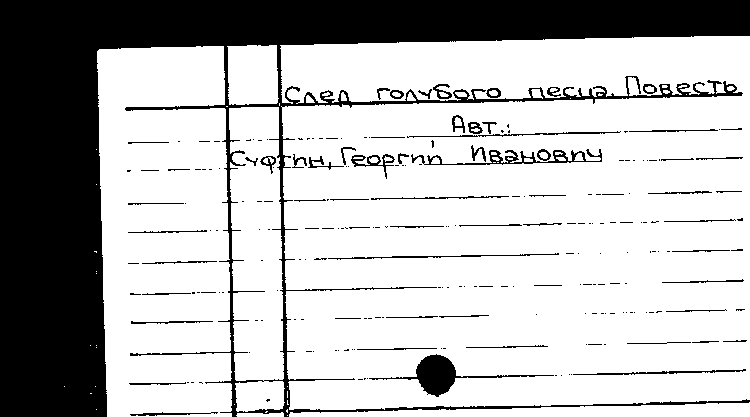 След голубого песца. Повесть
Авт.:
Суфтин, Георгий Иванович